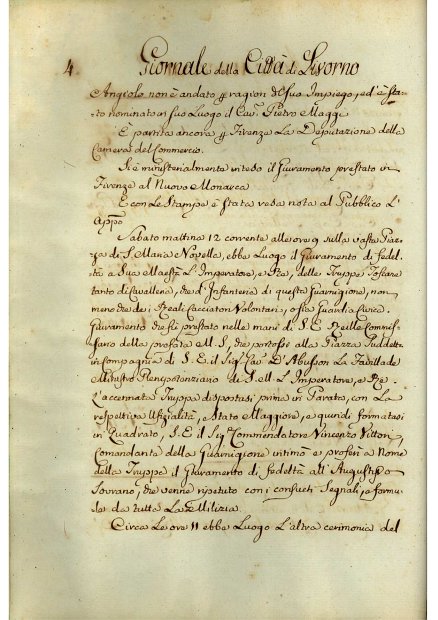 4. Giornale della Città di Livorno
Angiolo non è andato p ragion di suo Impiego, ed è sta=
to nominato in suo Luogo il Cav. Pietro Maggi
È partita ancora p Firenze La Deputazione della
Camera del Commercio.
Si è ministerialmente inteso il Giuramento prestato in
Firenze al Nuovo Monarca
E con Le Stampe è stata resa nota al Pubblico L'
Appo
Sabato mattina 12 corrente alle ore 9 sulla vasta Piaz=
za di S. Maria Novella, ebbe Luogo il Giuramento di Fedel=
tà a Sua Maestà L'Imperatore, e Re, delle Truppe Toscane
tanto di Cavalleria, che d'Infanteria di questa Guarnigione, non
meno che dei Reali Cacciatori Volontari, o sia Guardia Civica.
Giuramento che fù prestato nelle mani di S. E. il Commis=
sario della prefata M. S. che portossi alla Piazza suddetta
in compagnia di S. E. il Sig. Cav. D'Abusson La Favillade
Ministro Plenipotenziario di S. M. L'Imperatore, e Re.
L'accennata Truppa dispostasi prima in Parata, con La
respettiva Ufizialità, e Stato Maggiore, e quindi formatasi
in Quadrato, S. E. il Sig. Commendatore Vincenzo
Comandante della Guarnigione intimò e proferì a Nome
della Truppa il Giuramento di fedeltà all'Augusto
Sovrano, che venne ripetuto con i consueti Segnali, e formu=
le da tutta La Milizia.
Circa Le ore 11 ebbe Luogo L'altra cerimonia del